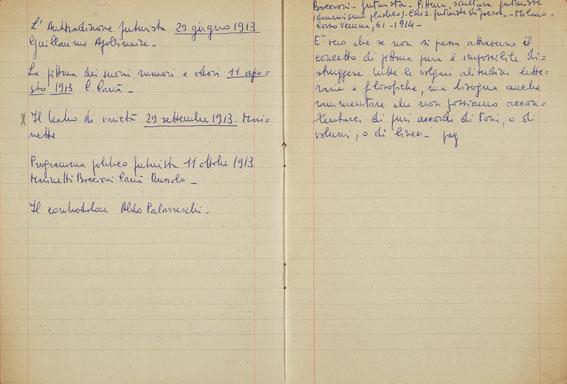 L'Antitradizione futurista 29 giugno 1913
Guillaume Apollinaire.
La pittura dei suoni rumori e odori 11 ago=
sto 1913 C. Carrà
x Il teatro di varietà 29 settembre 1913. Mari=
netti
Programma politico futurista 11 ottobre 1913
Marinetti Boccioni Carrà Russolo_
Il controdolore Aldo Palazzeschi.
Boccioni futurista - Pittura, scultura futuriste
(dinamismo plastico). Ediz. futuriste di poesia - Milano -
Corso Venezia, 61 - 1914 -
È vero che se non si passa attraverso il
concetto di pittura pura è impossibile di=
struggere tutte le volgari abitudini lette=
rarie e filosofiche, ma bisogna anche
rammentare che non possiamo accon=
tentarci di puri accordi di toni, o di
volumi, o di linee. pag